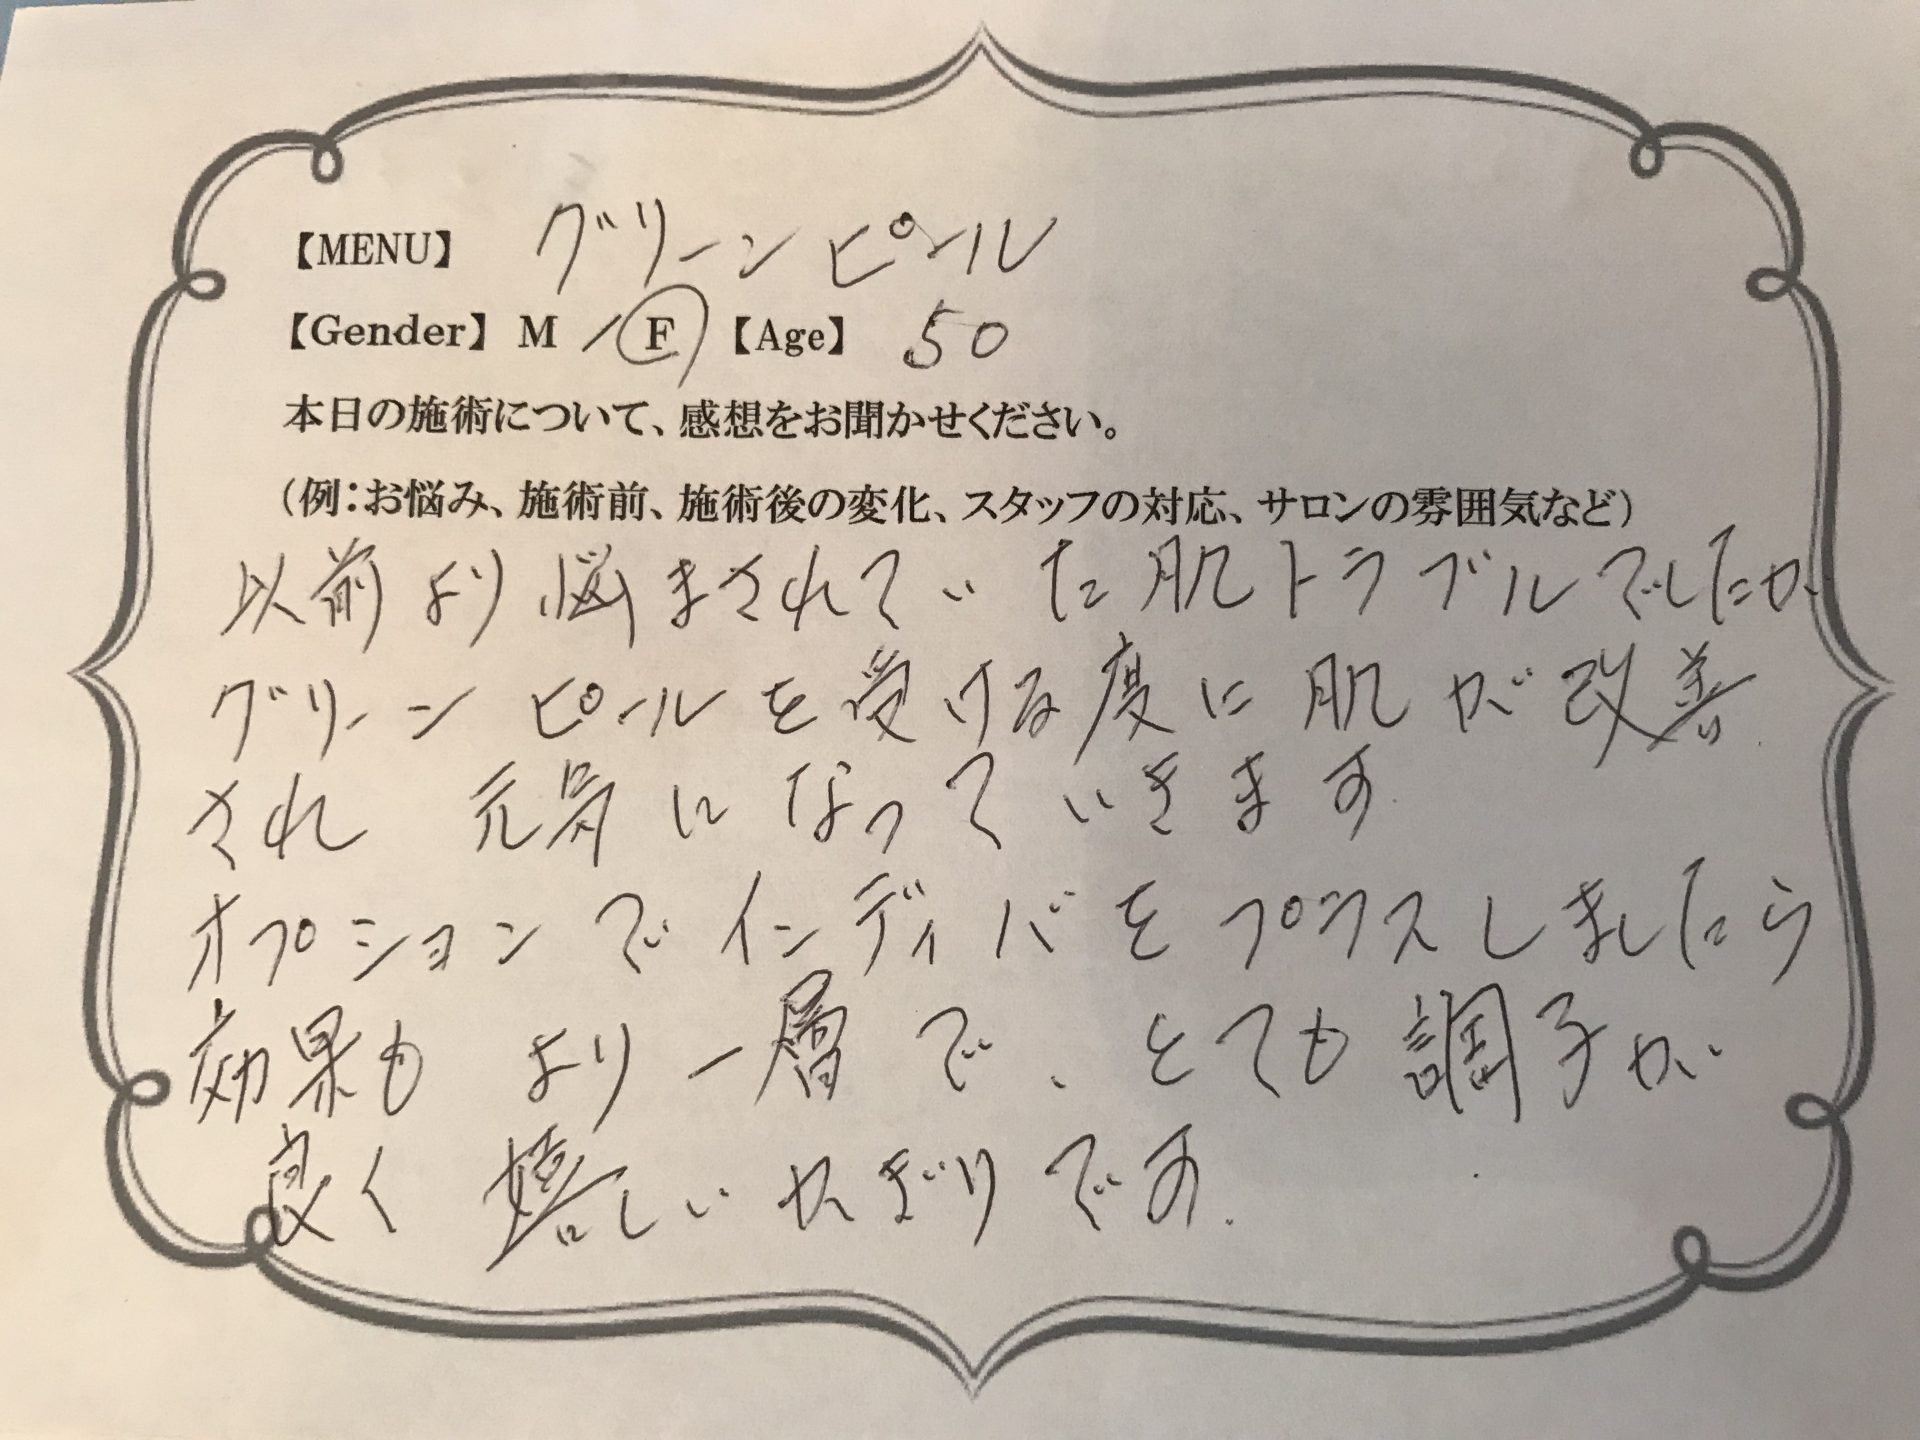 【MENU】 グリーンピール
【Gender】 M / F 【Age】 50
本日の施術について、感想をお聞かせください。
(例：お悩み、施術前、施術後の変化、スタッフの対応、サロンの雰囲気など)
以前より悩まされていた肌トラブルでしたが
グリーンピールを受ける度に肌が改善
され 元気になっていきます
オプションでインディバをプラスしましたら
効果も より一層で、とても調子が
良く 嬉しいかぎりです.